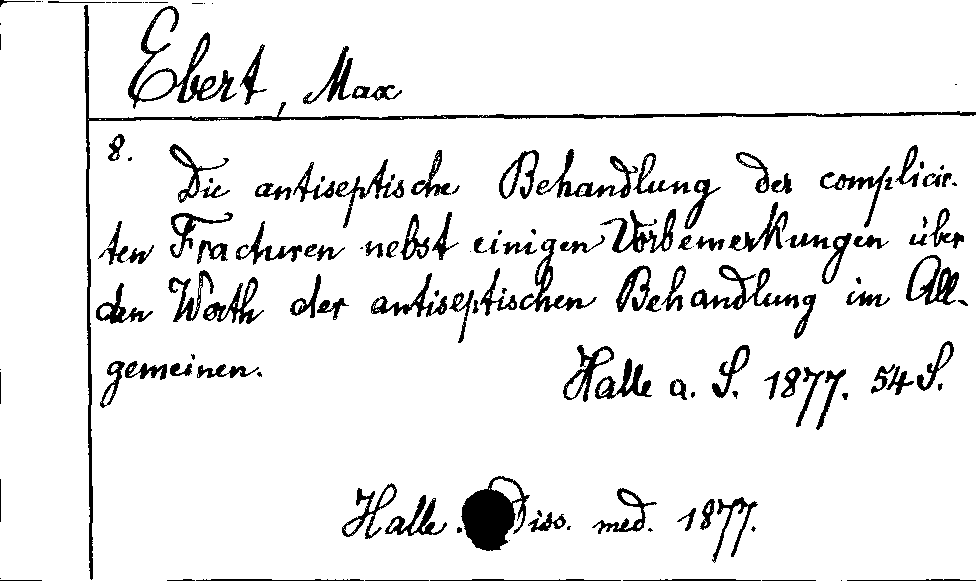 Ebert, Max
8.
Die antiseptische Behandlung der complicir-
ten Fracturen nebst einigen Vorbemerkungen über
den Werth der antiseptischen Behandlung im All-
gemeinen.
Halle a. S. 1877. 54 S.
Halle. Diss. med. 1877.